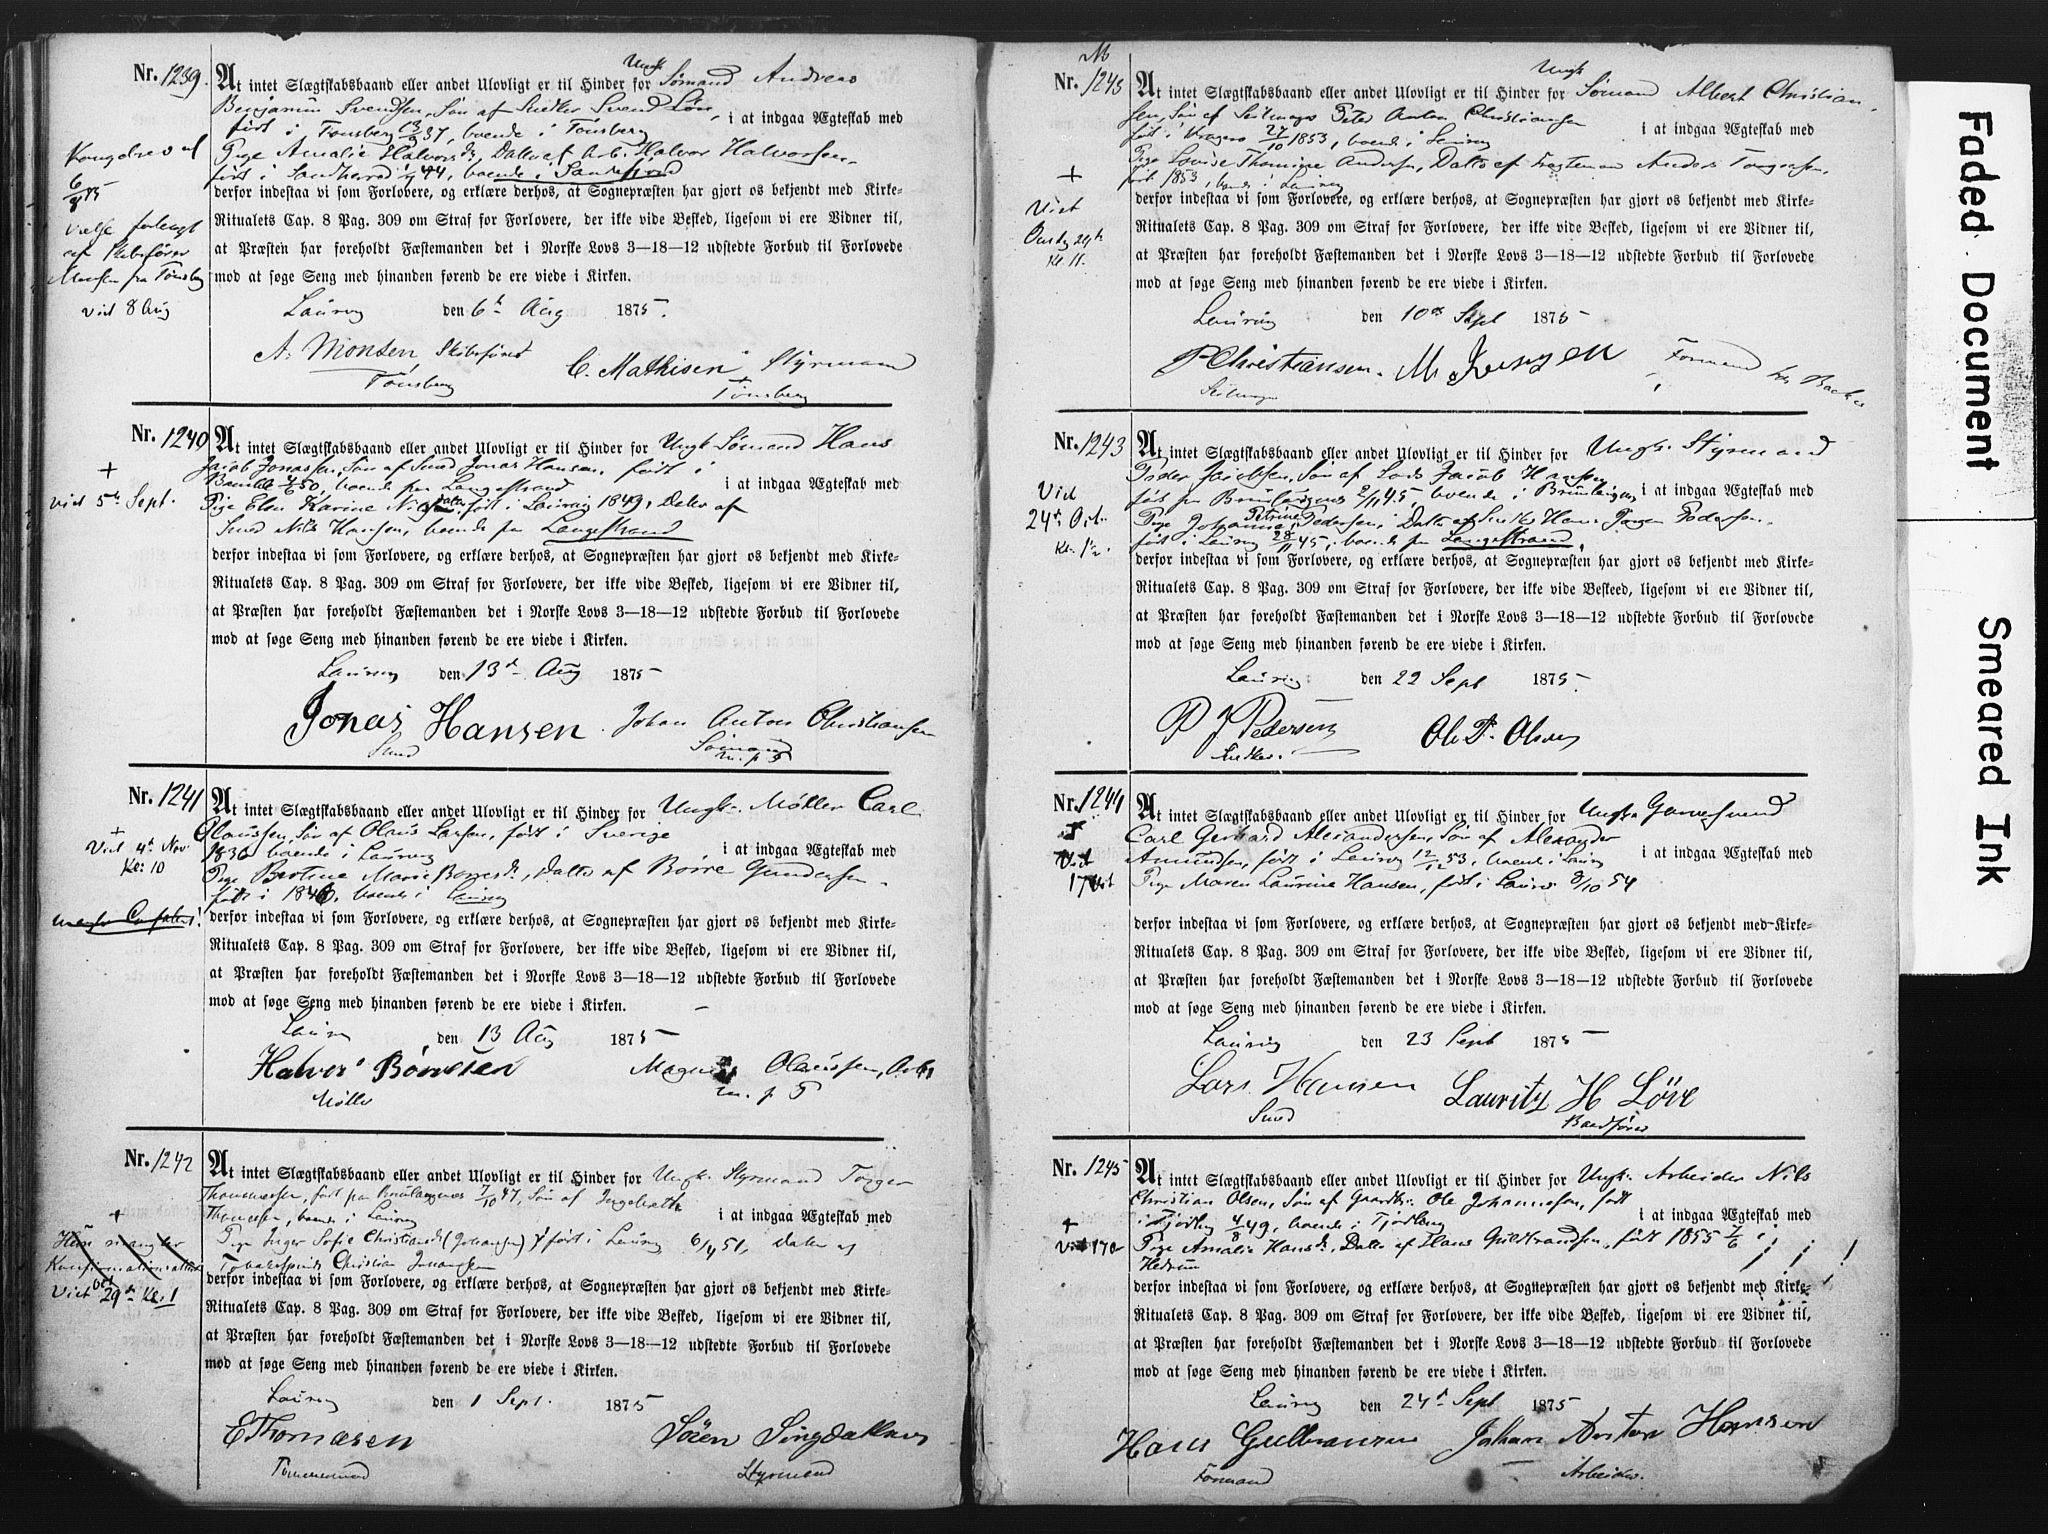 Nr. 1239.
Ungk
At intet Slægtskabsbaand eller andet Ulovligt er til Hinder for Sømand Andreas
Benjamin Svendsen, Søn af Snedker Svend
født i Tønsberg 37, boende i Tønsberg i at indgaa Ægteskab med
Pige Amalie Halvorsd., Datter af Arb. Halvor Halvorsen
født i Sandherred 44, boende i Sandefjord
derfor indestaa vi som Forlovere, og erklære derhos, at Sognepræsten har gjort os bekjendt med Kirke-
Ritualets Cap. 8 Pag. 309 om Straf for Forlovere, der ikke vide Besked, ligesom vi ere Vidner til,
at Præsten har foreholdt Fæstemanden det i Norske Lovs 3—18—12 udstedte Forbud til Forlovede
mod at søge Seng med hinanden førend de ere viede i Kirken.
Kongebrev af
6/8 75
forlangt
af Skibsfører
Monsen fra Tønsberg
vied 8 Aug
Laurvig den 6te Aug 1875.
A. Monsen Skibsfører C. Mathisen Styrmand
Tønsberg Tønsberg
Nr. 1240
At intet Slægtskabsbaand eller andet Ulovligt er til Hinder for Ungk. Sømand Hans
Jacob Jonassen, Søn af Smed Jonas Hansen, født i
50, boende paa Langestrand i at indgaa Ægteskab med
Pige Elen Karine født i Laurvig 1849, Datter af
Smed Nils Hansen, boende paa Langestrand
+
vied 5te Sept.
derfor indestaa vi som Forlovere, og erklære derhos, at Sognepræsten har gjort os bekjendt med Kirke-
Ritualets Cap. 8 Pag. 309 om Straf for Forlovere, der ikke vide Besked, ligesom vi ere Vidner til,
at Præsten har foreholdt Fæstemanden det i Norske Lovs 3—18—12 udstedte Forbud til Forlovede
mod at søge Seng med hinanden førend de ere viede i Kirken.
Laurvig den 13de Aug 1875
Jonas Hansen. Johan Anton Christiansen
Smed Sømand
m. p. P
Nr. 1241
At intet Slægtskabsbaand eller andet Ulovligt er til Hinder for Ungk. Møller Carl
Olaussen, Søn af Olaus Larsen, født i Sverige
1836 boende i Laurvig i at indgaa Ægteskab med
Pige Bertine Marie Borresd., Datter af Börre Gundersen
født i 1846, boende i Laurvig
+
Vied 4de Nov
Kl: 10
derfor indestaa vi som Forlovere, og erklære derhos, at Sognepræsten har gjort os bekjendt med Kirke-
Ritualets Cap. 8 Pag. 309 om Straf for Forlovere, der ikke vide Besked, ligesom vi ere Vidner til,
at Præsten har foreholdt Fæstemanden det i Norske Lovs 3—18—12 udstedte Forbud til Forlovede
mod at søge Seng med hinanden førend de ere viede i Kirken.
Laurvig den 13 Aug 1875
Halver Börresen Magnus Olaussen, Arb
Møller m. p. P
Nr. 1242
At intet Slægtskabsbaand eller andet Ulovligt er til Hinder for Ungk. Styrmand Torger
Thomassen, født paa Brunlangenæs 7/10 47, Søn af Ingebreth
Thomassen, boende i Laurvig i at indgaa Ægteskab med
Pige Inger Sofie Christiansd. (Johansen) født i Laurvig 6/4 51, Datter af
Christian Johansen
+
mangler
Konfirmationsattest
Vied 29de Kl. 1
derfor indestaa vi som Forlovere, og erklære derhos, at Sognepræsten har gjort os bekjendt med Kirke-
Ritualets Cap. 8 Pag. 309 om Straf for Forlovere, der ikke vide Besked, ligesom vi ere Vidner til,
at Præsten har foreholdt Fæstemanden det i Norske Lovs 3—18—12 udstedte Forbud til Forlovede
mod at søge Seng med hinanden førend de ere viede i Kirken.
Laurvig den 1 Sept. 1875
E Thomasen Sören
Tømmermand Styrmand
Nr. 1243
Ungk
At intet Slægtskabsbaand eller andet Ulovligt er til Hinder for Sømand Albert Christian-
sen, Søn af Seilmager Peter Anton Christiansen
født i Kragerø 27/10 1853, boende i Laurvig i at indgaa Ægteskab med
Pige Lovise Thomine Andersen, Datter af Anders Torgersen,
født 1853, boende i Laurvig
+
Viet
Onsdg 29de
Kl 11.
derfor indestaa vi som Forlovere, og erklære derhos, at Sognepræsten har gjort os bekjendt med Kirke-
Ritualets Cap. 8 Pag. 309 om Straf for Forlovere, der ikke vide Besked, ligesom vi ere Vidner til,
at Præsten har foreholdt Fæstemanden det i Norske Lovs 3—18—12 udstedte Forbud til Forlovede
mod at søge Seng med hinanden førend de ere viede i Kirken.
Laurvig den 10de Sept 1875
P Christiansen. M Jensen Formand
Seilmager
Nr. 1243
At intet Slægtskabsbaand eller andet Ulovligt er til Hinder for Ungk. Styrmand
Peder Jacobsen, Søn af Lods Jacob Hansen
født paa Brunlangnæs 2/11 45, boende i Brunlangnæs i at indgaa Ægteskab med
Pige Johanne Petrine Pedersen, Datter af Snedker Hans Jørgen Pedersen
født i Laurvig 28/11 45, boende paa Langestrand,
Vied
24de Oct.
Kl. 1½
derfor indestaa vi som Forlovere, og erklære derhos, at Sognepræsten har gjort os bekjendt med Kirke-
Ritualets Cap. 8 Pag. 309 om Straf for Forlovere, der ikke vide Besteed, ligesom vi ere Vidner til,
at Præsten har foreholdt Fæstemanden det i Norske Lovs 3—18—12 udstedte Forbud til Forlovede
mod at søge Seng med hinanden førend de ere viede i Kirken.
Laurvig den 22 Sept 1875.
P J Pedersen Ole P. Olsen
Snedker.
Nr. 1244
At intet Slægtskabsbaand eller andet Ulovligt er til Hinder for Ungk. Garversvend
Carl Gerhard Alexandersen, Søn af Alexander
Amundsen, født i Laurvig 12/12 53, boende i Laurvig i at indgaa Ægteskab med
Pige Maren Laurine Hansen, født i Laurvig 8/10 54
Vied
17 Oct
derfor indestaa vi som Forlovere, og erklære derhos, at Sognepræsten har gjort os bekjendt med Kirke-
Ritualets Cap. 8 Pag. 309 om Straf for Forlovere, der ikke vide Besked, ligesom vi ere Vidner til,
at Præsten har foreholdt Fæstemanden det i Norske Lovs 3—18—12 udstedte Forbud til Forlovede
mod at søge Seng med hinanden førend de ere viede i Kirken.
Laurvig den 23 Sept 1875
Lars Hansen Lauritz H Löve
Smed Baadfører
Nr. 1245
At intet Slægtskabsbaand eller andet Ulovligt er til Hinder for Ungk. Arbeider Nils
Christian Olsen, Søn af Gaardbr. Ole Johannesen, født
i Tjødling 4/8 49, boende i Tjødling i at indgaa Ægteskab med
Pige Amalie Hansd., Datter af Hans Guldbrandsen, født 1855 7/6 i
Hedrum
+
Vied 17de
derfor indestaa vi som Forlovere, og erklære derhos, at Sognepræsten har gjort os bekjendt med Kirke-
Ritualets Cap. 8 Pag. 309 om Straf for Forlovere, der ikke vide Besked, ligesom vi ere Vidner til,
at Præsten har foreholdt Fæstemanden det i Norske Lovs 3—18—12 udstedte Forbud til Forlovede
mod at søge Seng med hinanden førend de ere viede i Kirken.
Laurvig den 24de Sept 1875
Hans Gulbransen Johan Anton Hansen
Formand Arbeider.
Faded Document
Smeared Ink